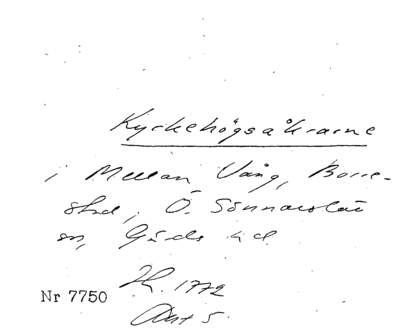 Kyrkehögsåkrarne
i Mellan Vång, Borre-
stad, Ö. Sönnarslöv
sn, Gärds hd.
Nr 7750 LK. 1772
Akt 5.